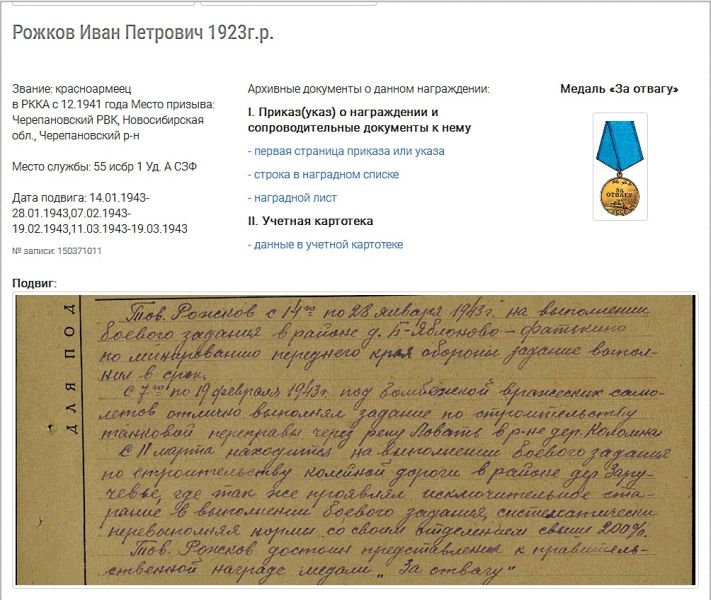 Рожков Иван Петрович 1923г.р.
Звание: красноармеец
в РККА с 12.1941 года Место призыва:
Черепановский РВК, Новосибирская
обл., Черепановский р-н
Место службы: 55 исбр 1 Уд. А СЗФ
Дата подвига: 14.01.1943-
28.01.1943,07.02.1943-
19.02.1943,11.03.1943-19.03.1943
№ записи: 150371011
Архивные документы о данном награждении:
I. Приказ(указ) о награждении и
сопроводительные документы к нему
- первая страница приказа или указа
- строка в наградном списке
- наградной лист
II. Учетная картотека
- данные в учетной картотеке
Медаль «За отвагу»
ЗА
ОТВАГУ
Подвиг:
ДЛЯ ПОД
Тов. Рожков с 14го по 28 января 1943г. на выполнении
боевого задания в районе д. Б-Яблоново - Фатькино
по минированию переднего края обороны задание выпол-
нил в срок.
С 7го по 19 февраля 1943г. под бомбежкой вражеских само-
летов отлично выполнял задание по строительству
танковой переправы через реку Ловать в р-не дер. Коломна
С 11 марта находится на выполнении боевого задания
по строительству колейной дороги в районе дер Запру-
чевье, где так же проявлял исключительное ста-
рание в выполнении боевого задания, систематически
перевыполняя нормы со своим отделением свыше 200%.
Тов. Рожков достоин представления к правитель-
ственной награде медали „За отвагу"